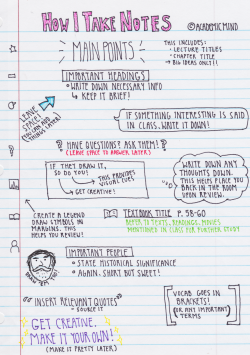 How I Take Notes
©ACADEMICMIND
MAIN POINTS
THIS INCLUDES:
• LECTURE TITLES
• CHAPTER TITLE
→ BIG IDEAS ONLY!!
IMPORTANT HEADINGS
• WRITE DOWN NECESSARY INFO
↳ KEEP IT BRIEF!
LEAVE SPACE!
(YOU CAN ADD THINGS LATER)
IF SOMETHING INTERESTING IS SAID
IN CLASS... WRITE IT DOWN!
? HAVE QUESTIONS? ASK THEM!
(LEAVE SPACE TO ANSWER LATER)
IF THEY DRAW IT,
SO DO YOU!
THIS PROVIDES
VISUAL CUES
GET CREATIVE!
WRITE DOWN ANY
THOUGHTS DOWN.
THIS HELPS PLACE YOU
BACK IN THE ROOM
UPON REVIEW.
CREATE A LEGEND
DRAW SYMBOLS IN
MARGINS. THIS
HELPS YOU REVIEW!
TEXTBOOK TITLE P. 58-60
REFER TO TEXTS, READINGS, MOVIES
MENTIONED IN CLASS FOR FURTHER STUDY
IMPORTANT PEOPLE
• STATE HISTORICAL SIGNIFICANCE
• AGAIN... SHORT BUT SWEET!
DRAW 'EM TOO!
"INSERT RELEVANT QUOTES"
- SOURCE IT
VOCAB GOES IN
BRACKETS!
(OR ANY IMPORTANT
TERMS)
GET CREATIVE.
MAKE IT YOUR OWN!
(MAKE IT PRETTY LATER)